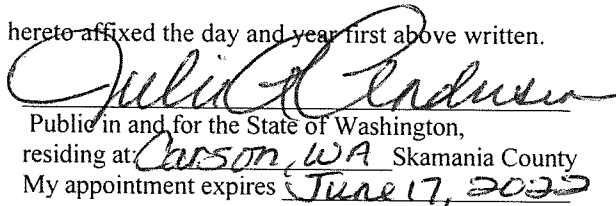 hereto affixed the day and year first above written.
Julie A Andersen
Public in and for the State of Washington,
residing at: Carson, WA Skamania County
My appointment expires June 17, 2022